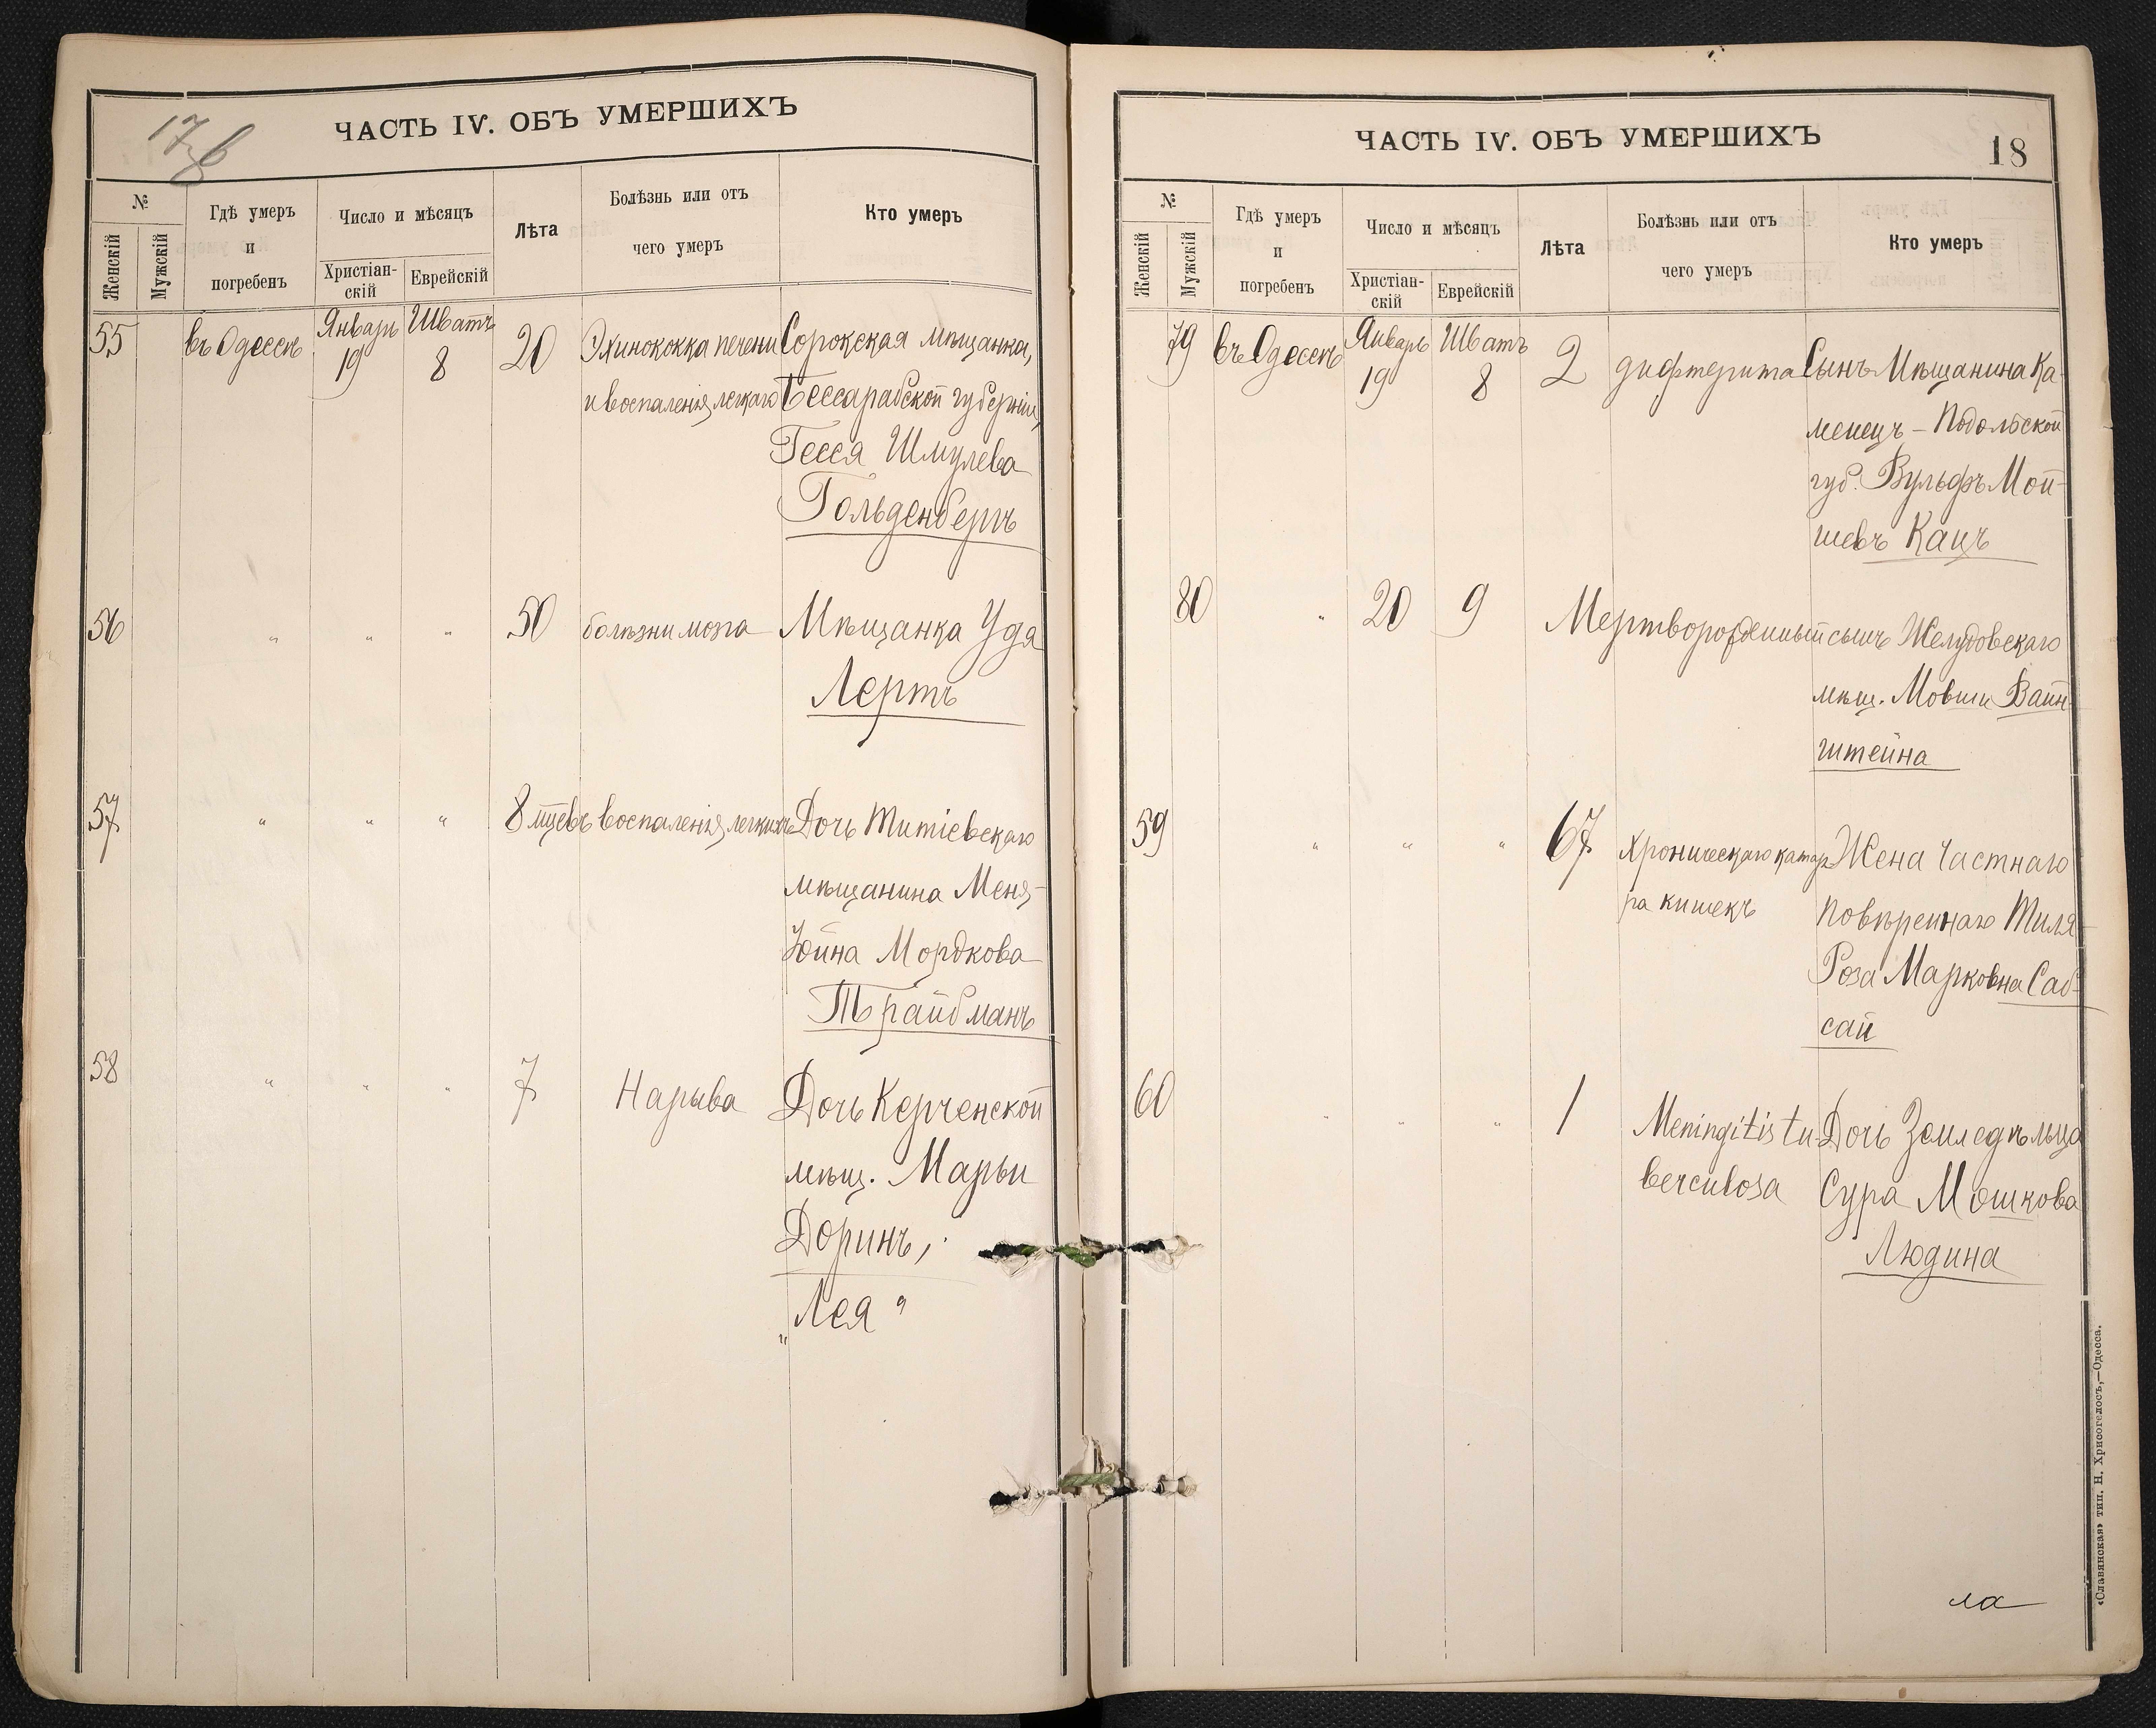 17 об
ЧАСТЬ IV. ОБЪ УМЕРШИХЪ
№
Женскій
Мужскій
Гдѣ умеръ
и
погребенъ
Число и мѣсяцъ
Христіан-
скій
Еврейскій
Лѣта
Болѣзнь или отъ
чего умеръ
Кто умеръ
55 въ Одессѣ Январь 19 Шватъ 8 20 Эхинококка печени Сорокская мѣщанка,
и воспаленія легкаго Бессарабской губерніи,
Гесся Шмулева
Гольденбергъ
56 " " " 50 болѣзни мозга Мѣщанка Удя
Лертъ
57 " " " 8 мцевъ воспаленія легкихъ Дочь Титіевскаго
мѣщанина Меня-
Юйна Мордкова
Трайбманъ
58 " " " 7 Нарыва Дочь Керченской
мѣщ. Марьи
Доринъ,
"Лея"
ЧАСТЬ IV. ОБЪ УМЕРШИХЪ
18
№
Женскій
Мужскій
Гдѣ умеръ
и
погребенъ
Число и мѣсяцъ
Христіан-
скій
Еврейскій
Лѣта
Болѣзнь или отъ
чего умеръ
Кто умеръ
79 въ Одессѣ Январь 19 Шватъ 8 2 дифтерита Сынъ Мѣщанина Ка-
менецъ-Подольской
губ. Вульфъ Мой-
шевъ Кацъ
80 " 20 9 Мертворожденный сынъ Желудовскаго
мѣщ. Мовши Вайн-
штейна
59 " " " 67 Хроническаго катар- Жена Частнаго
ра кишекъ Повѣреннаго Тиля-
Роза Марковна Саб-
сай
60 " " " 1 Meningitis tu- Дочь Земледѣльца
berculosa Сура Мошкова
Людина
ла
«Славянская» тип. Н. Хрисогелосъ,—Одесса.